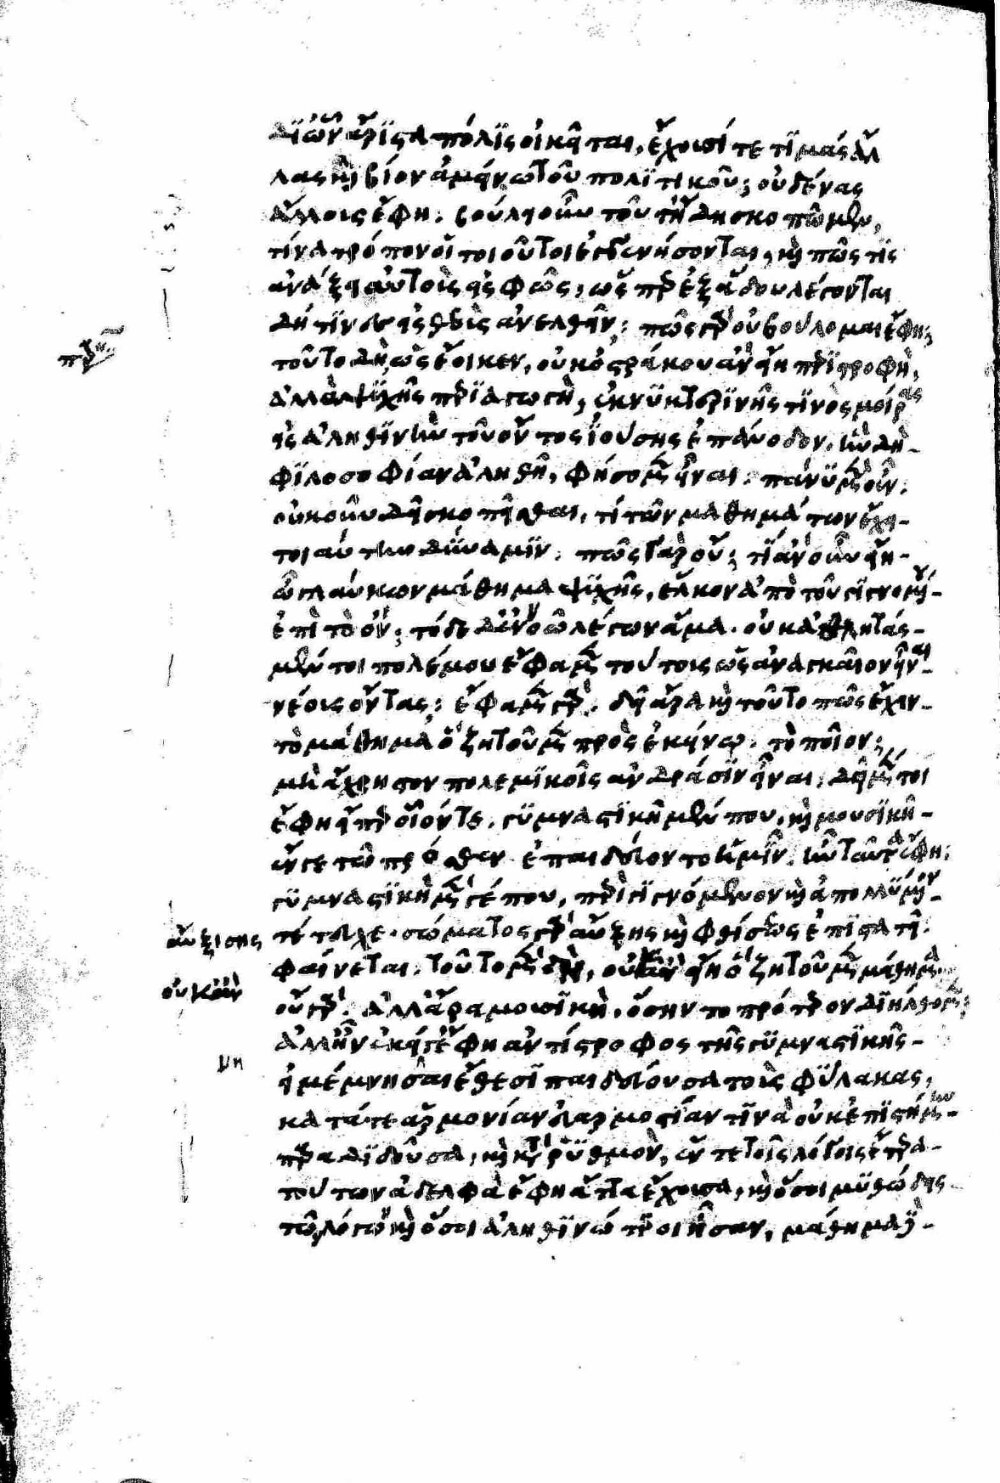 δι ὧν ἄριστα πόλις οἰκεῖται, ἔχουσί τε τιμὰς ἄλ
λας καὶ βίον ἀμείνω τοῦ πολιτικοῦ; οὐδένας
ἄλλους ἔφη. βούλει οὖν τοῦτ ἤδη σκοπῶμεν,
τίνα τρόπον οἱ τοιοῦτοι ἐγγενήσονται, καὶ πῶς τις
ἀνάξει αὐτοὺς εἰς φῶς, ὥσπερ ἐξ ἅδου λέγονται
δή τινες εἰς θεοὺς ἀνελθεῖν; πῶς γὰρ οὐ βούλομαι ἔφη;
τοῦτο δὴ, ὡς ἔοικεν, οὐκ ὀστράκου ἂν εἴη περιστροφὴ,
ἀλλὰ ψυχῆς περιαγωγὴ, ἐκ νυκτερινῆς τινὸς ἡμέρας
εἰς ἀληθινὴν τοῦ ὄντος ἰούσης ἐπάνοδον, ἣν δὴ
φιλοσοφίαν ἀληθῆ, φήσομεν εἶναι. πάνυ μὲν οὖν.
οὐκοῦν δεῖ σκοπεῖσθαι, τί τῶν μαθημάτων ἔχει
τοιαύτην δύναμιν. πῶς γὰρ οὔ; τί ἂν οὖν εἴη
ὦ γλαύκων μάθημα ψυχῆς, ἑλκὸν ἀπὸ τοῦ γιγνομένου
ἐπὶ τὸ ὄν; τόδε δ ἐννοῶ λέγων ἅμα. οὐκ ἀθλητὰς
μέντοι πολέμου ἔφαμεν τούτους ὡς ἀναγκαῖον εἶναι
νέους ὄντας; ἔφαμεν γάρ. δεῖ ἄρα καὶ τοῦτο πως ἔχειν
τὸ μάθημα ὃ ζητοῦμεν πρὸς ἐκείνῳ. τὸ ποῖον;
μὴ ἄχρηστον πολεμικοῖς ἀνδράσιν εἶναι. δεῖ μέντοι
ἔφη εἴπερ οἷόν τε. γυμναστικῇ μέν που, καὶ μουσικῇ
ἔν γε τῷ πρόσθεν ἐπαιδεύοντο ἡμῖν. ἦν ταῦτα ἔφη.
γυμναστικὴ μέν γέ που, περὶ γιγνόμενον καὶ ἀπολλύμενον
τέτευχε. σώματος γὰρ αὔξης καὶ φθίσεως ἐπιστατεῖ.
αὐξίσης
φαίνεται. τοῦτο μὲν δὴ, οὐκ ἂν εἴη ὃ ζητοῦμεν μάθημα.
οὐκοῦν
οὐ γάρ. ἀλλ ἄρα μουσικὴ, ὅσην τὸ πρότερον διήλθομεν;
ἀλλ ἦν ἐκείνη γ ἔφη ἀντίστροφος τῆς γυμναστικῆς
μη
εἰ μέμνησαι ἔθεσι παιδεύουσα τοὺς φύλακας,
κατά τε ἁρμονίαν εὐαρμοστίαν τινὰ οὐκ ἐπιστήμην
παραδιδοῦσα, καὶ κατὰ ῥυθμὸν, ἔν τε τοῖς λόγοις ἕτερα
τούτων ἀδελφὰ ἔφη ἄττα ἔχουσα, καὶ ὅσοι μυθώδεις
τῶν λόγων καὶ ὅσοι ἀληθινώτεροι ἦσαν, μάθημα δὲ